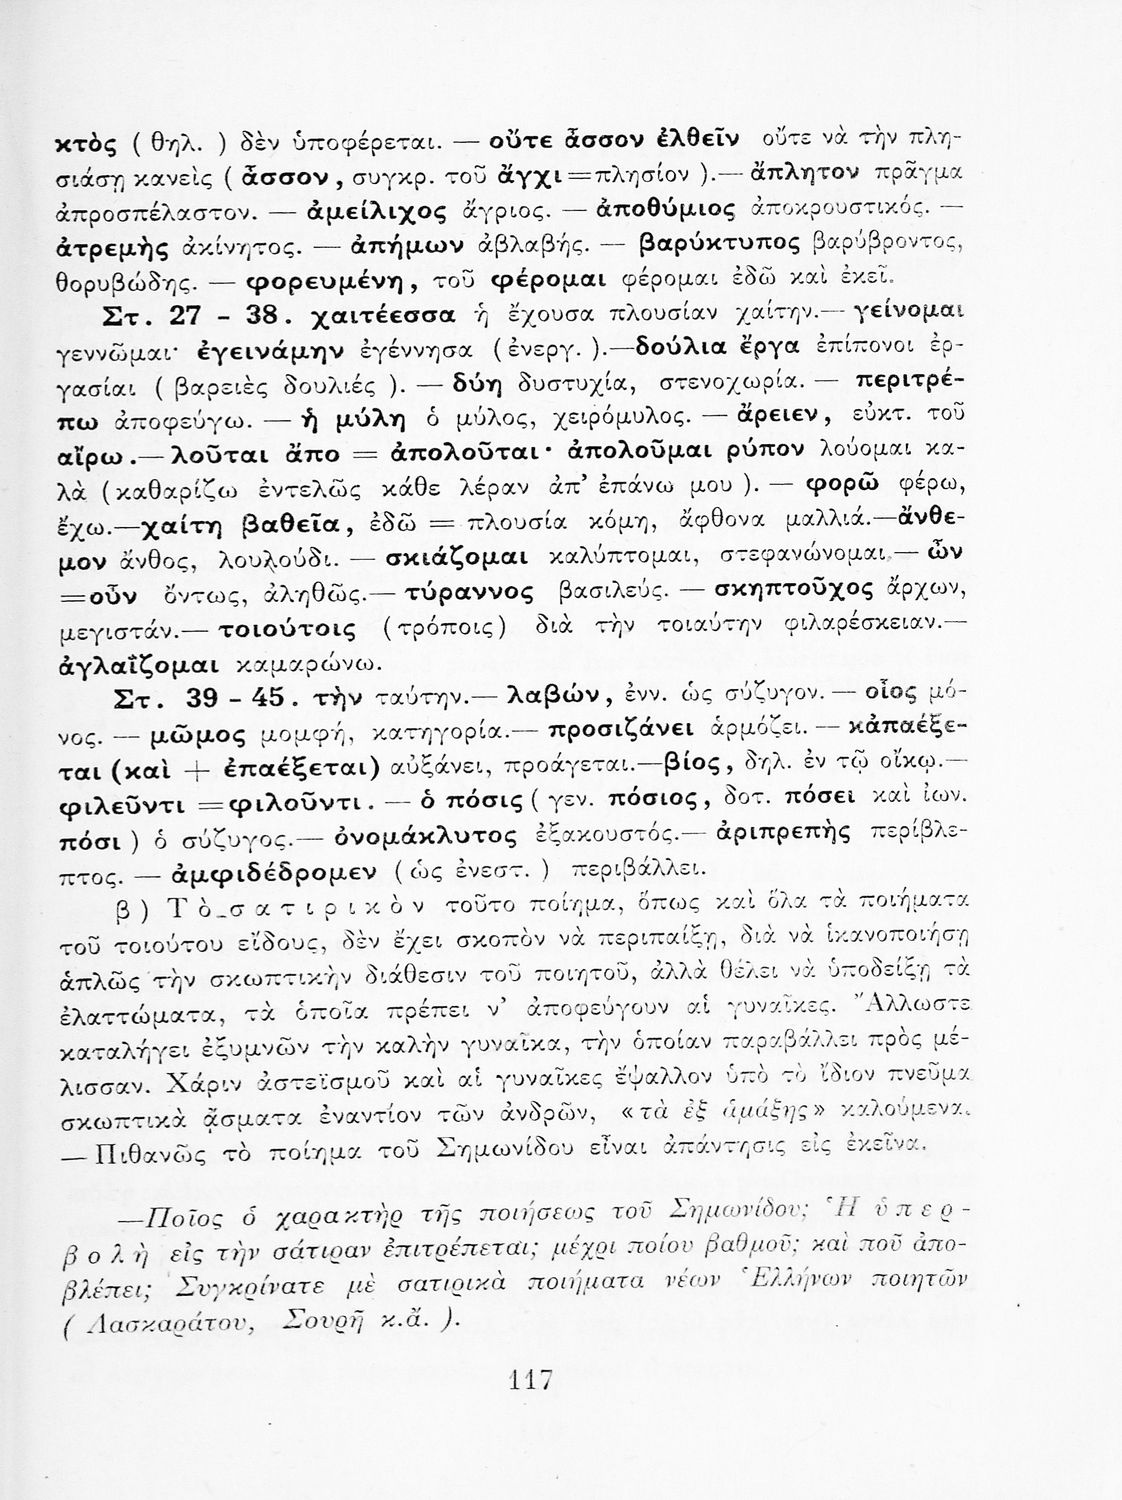 κτὸς ( θηλ. ) δὲν ὑποφέρεται. — οὔτε ἆσσον ἐλθεῖν οὔτε νὰ τὴν πλη-
σιάσῃ κανεὶς ( ἆσσον , συγκρ. τοῦ ἄγχι =πλησίον ).— ἄπλητον πρᾶγμα
ἀπροσπέλαστον. — ἀμείλιχος ἄγριος. — ἀποθύμιος ἀποκρουστικός. —
ἀτρεμὴς ἀκίνητος. — ἀπήμων ἀβλαβής. — βαρύκτυπος βαρύβροντος,
θορυβώδης. — φορευμένη , τοῦ φέρομαι φέρομαι ἐδῶ καὶ ἐκεῖ.
Στ. 27 - 38 . χαιτέεσσα ἡ ἔχουσα πλουσίαν χαίτην.— γείνομαι
γεννῶμαι· ἐγεινάμην ἐγέννησα ( ἐνεργ. ).—δούλια ἔργα ἐπίπονοι ἐρ-
γασίαι ( βαρειὲς δουλιές ). — δύη δυστυχία, στενοχωρία. — περιτρέ-
πω ἀποφεύγω. — ἡ μύλη ὁ μύλος, χειρόμυλος. — ἄρειεν , εὐκτ. τοῦ
αἴρω .— λοῦται ἄπο = ἀπολοῦται · ἀπολοῦμαι ρύπον λούομαι κα-
λὰ ( καθαρίζω ἐντελῶς κάθε λέραν ἀπ’ ἐπάνω μου ). — φορῶ φέρω,
ἔχω.—χαίτη βαθεῖα , ἐδῶ = πλουσία κόμη, ἄφθονα μαλλιά.—ἄνθε-
μον ἄνθος, λουλούδι. — σκιάζομαι καλύπτομαι, στεφανώνομαι.— ὦν
=οὖν ὄντως, ἀληθῶς.— τύραννος βασιλεύς. — σκηπτοῦχος ἄρχων,
μεγιστάν.— τοιούτοις ( τρόποις ) διὰ τὴν τοιαύτην φιλαρέσκειαν.—
ἀγλαΐζομαι καμαρώνω.
Στ. 39 - 45 . τὴν ταύτην.— λαβών , ἐνν. ὡς σύζυγον. — οἶος μό-
νος. — μῶμος μομφή, κατηγορία.— προσιζάνει ἁρμόζει. — κἀπαέξε-
ται (καὶ + ἐπαέξεται) αὐξάνει, προάγεται.—βίος , δηλ. ἐν τῷ οἴκῳ.—
φιλεῦντι =φιλοῦντι . — ὁ πόσις ( γεν. πόσιος , δοτ. πόσει καὶ ἰων.
πόσι ) ὁ σύζυγος.— ὀνομάκλυτος ἐξακουστός.— ἀριπρεπὴς περίβλε-
πτος. — ἀμφιδέδρομεν ( ὡς ἐνεστ. ) περιβάλλει.
β ) Τὸ σατιρικὸν τοῦτο ποίημα, ὅπως καὶ ὅλα τὰ ποιήματα
τοῦ τοιούτου εἴδους, δὲν ἔχει σκοπὸν νὰ περιπαίξῃ, διὰ νὰ ἱκανοποιήσῃ
ἁπλῶς τὴν σκωπτικὴν διάθεσιν τοῦ ποιητοῦ, ἀλλὰ θέλει νὰ ὑποδείξῃ τὰ
ἐλαττώματα, τὰ ὁποῖα πρέπει ν’ ἀποφεύγουν αἱ γυναῖκες. Ἄλλωστε
καταλήγει ἐξυμνῶν τὴν καλὴν γυναῖκα, τὴν ὁποίαν παραβάλλει πρὸς μέ-
λισσαν. Χάριν ἀστεϊσμοῦ καὶ αἱ γυναῖκες ἔψαλλον ὑπὸ τὸ ἴδιον πνεῦμα
σκωπτικὰ ᾄσματα ἐναντίον τῶν ἀνδρῶν, «τὰ ἐξ ἁμάξης» καλούμενα.
— Πιθανῶς τὸ ποίημα τοῦ Σημωνίδου εἶναι ἀπάντησις εἰς ἐκεῖνα.
—Ποῖος ὁ χαρακτὴρ τῆς ποιήσεως τοῦ Σημωνίδου; Ἡ ὑπερ-
βολὴ εἰς τὴν σάτιραν ἐπιτρέπεται; μέχρι ποίου βαθμοῦ; καὶ ποῦ ἀπο-
βλέπει; Συγκρίνατε μὲ σατιρικὰ ποιήματα νέων Ἑλλήνων ποιητῶν
( Λασκαράτου, Σουρῆ κ.ἄ. ).
117